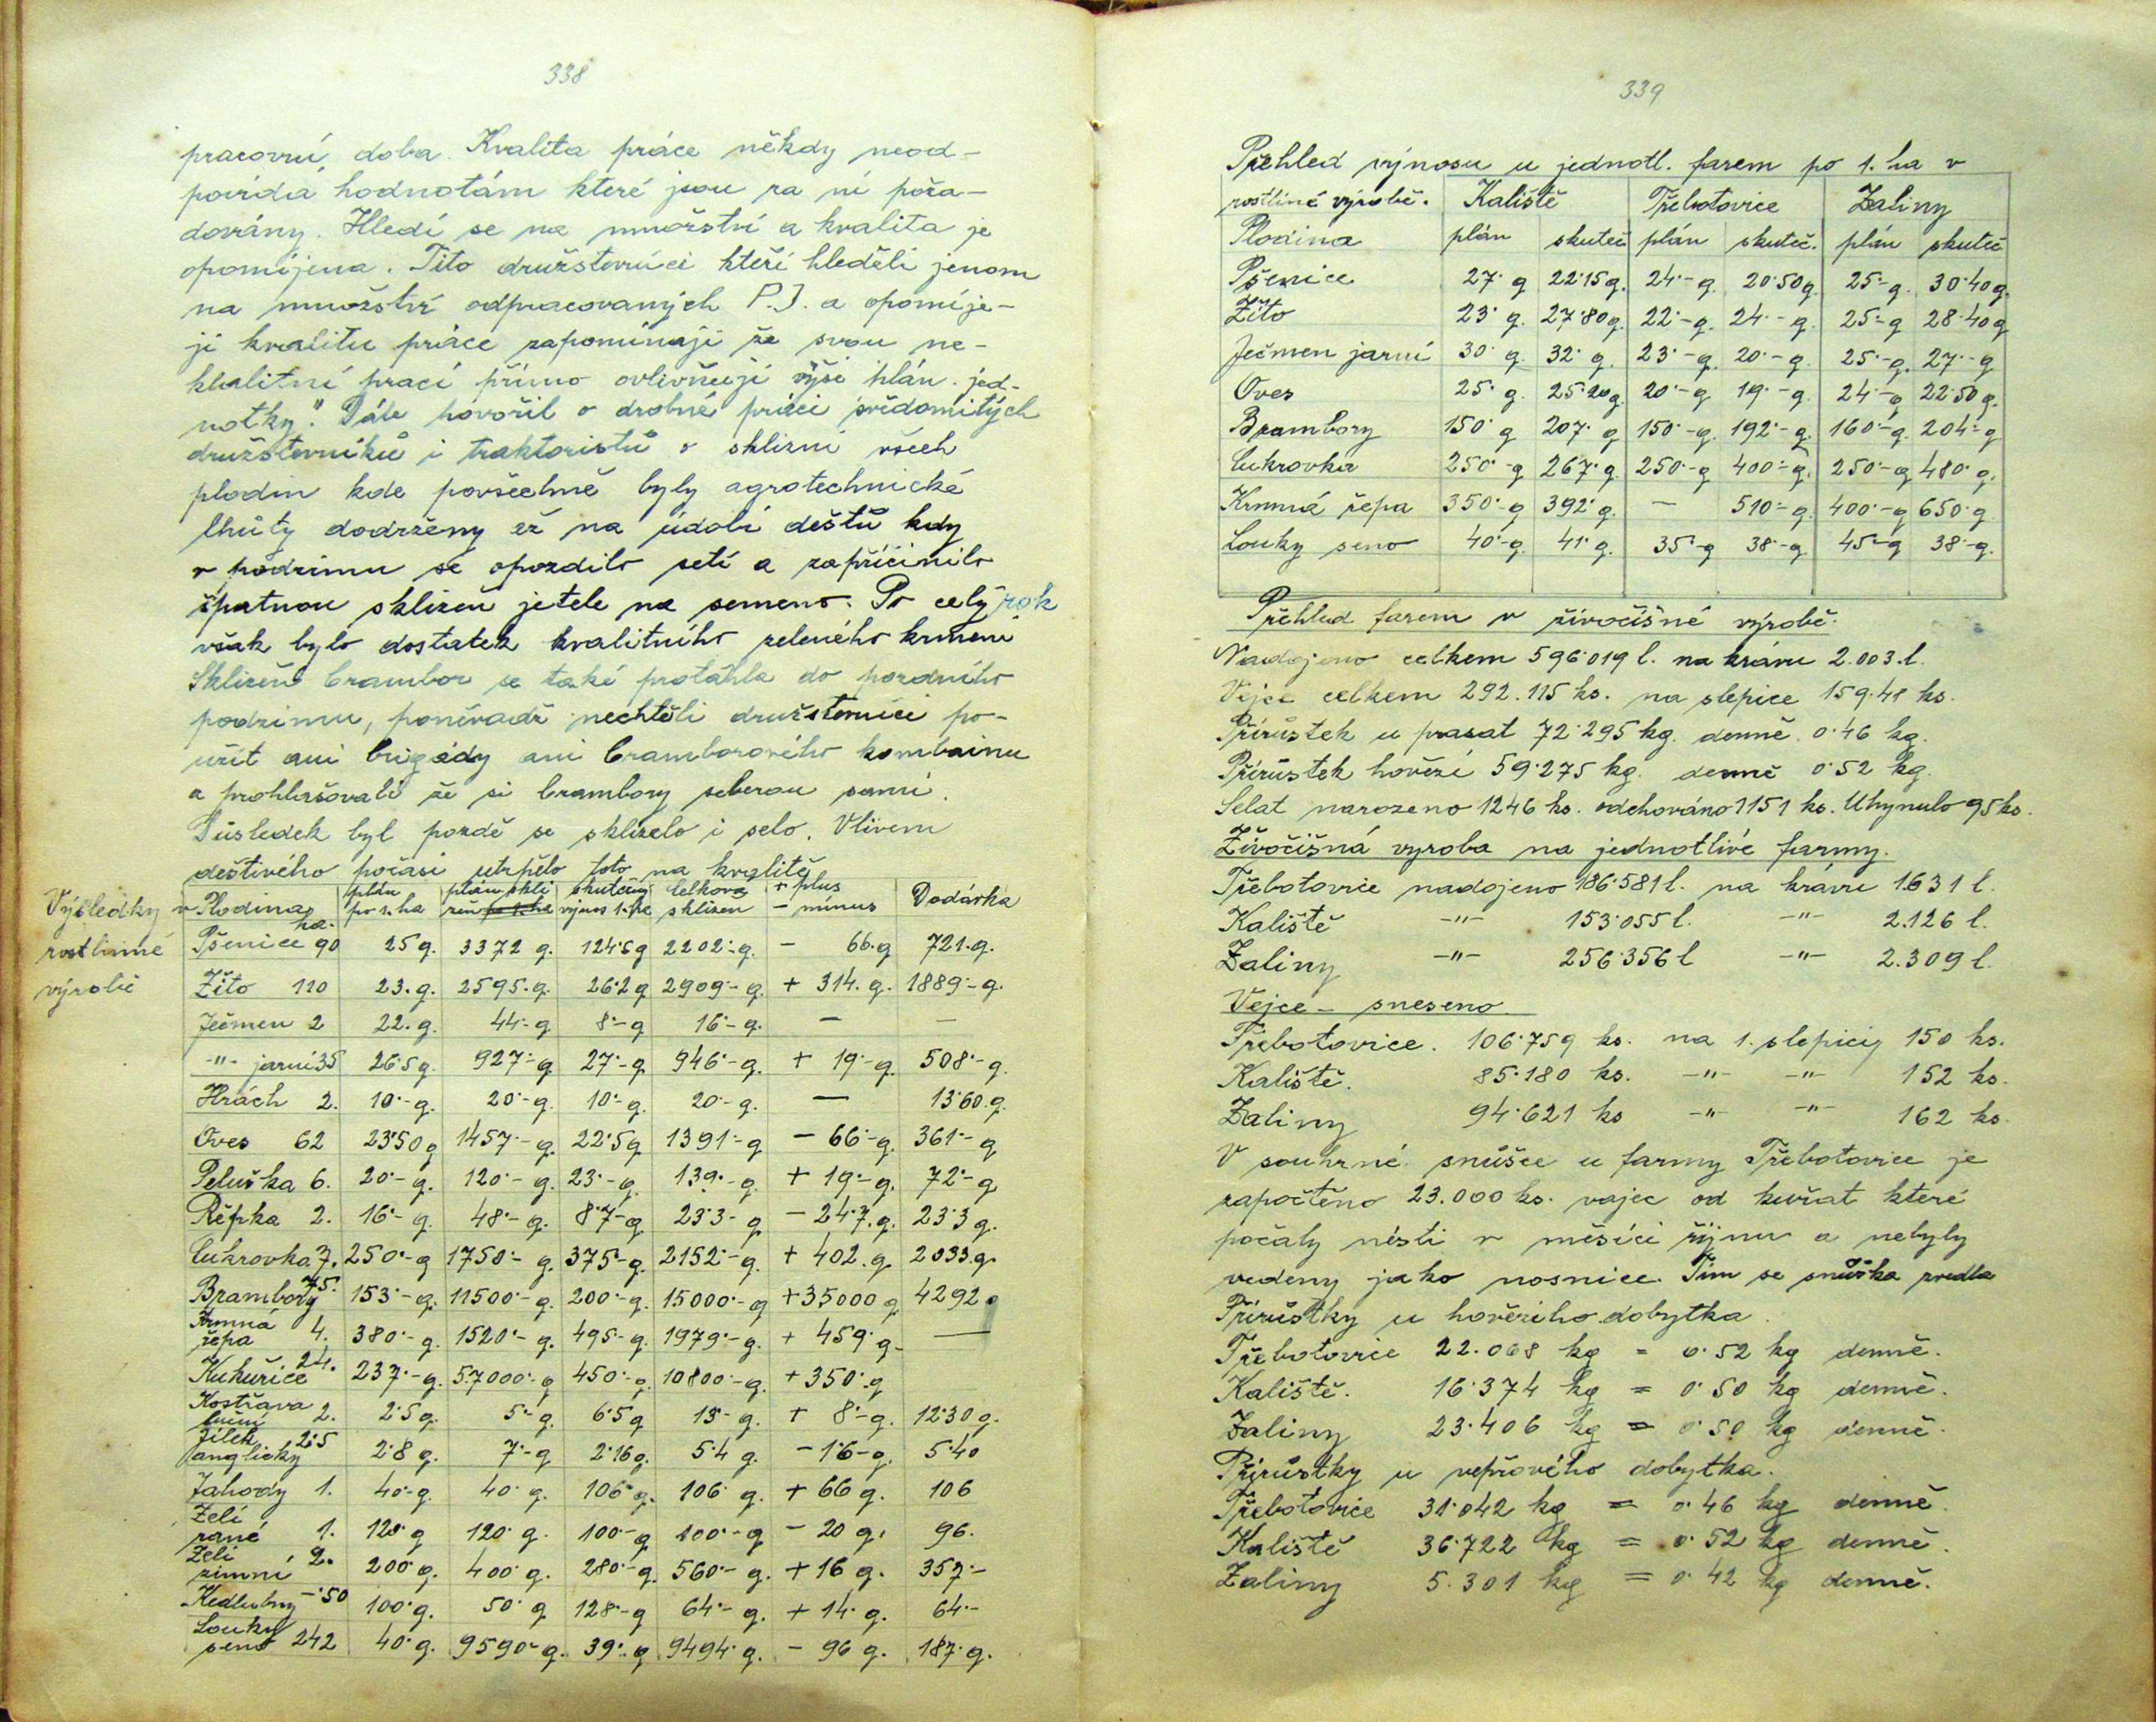 338
pracovní doba. Kvalita práce někdy neod-
povídá hodnotám které jsou za ní poža-
dovány. Hledí se na množství a kvalita je
opomíjena. Tito družstevníci kteří hleděli jenom
na množství odpracovaných P.J. a opomíje-
jí kvalitu práce zapomínají že svou ne-
kvalitní prací přímo ovlivňují výši plán. jed-
notky." Dále hovořil o drobné práci svědomitých
družstevníků i traktoristů o sklizni všech
plodin kde povšechně byly agrotechnické
lhůty dodrženy až na údobí dešťů kdy
v podzimu se opozdilo setí a zapříčinilo
špatnou sklizeň jetele na semeno. Po celý rok
však bylo dostatek kvalitního zeleného krmení
Sklizeň brambor se také protáhla do pozdního
podzimu, poněvadž nechtěli družstevníci po-
užít ani brigády ani bramborového kombainu
a prohlašovali že si brambory seberou sami.
Důsledek byl pozdě se sklízelo i selo. Vlivem
deštivého počasí utrpělo toto na kvalitě
Výsledky v rostlinné výrobě
Plodina ha. plán po 1.ha plán skli zeň po 1.ha skutečný výnos 1.ha celková sklizeň + plus - mínus Dodávka
Pšenice 90 25 q. 3372 q. 124.6q 2202.-q. - 66.q 721.q.
Žito 110 23.q. 2595.q. 26.2q 2909.-q. + 314.q. 1889.-q.
Ječmen 2 22.q. 44.-q 8.-q 16.-q. — —
-"- jarní 35 26.5q. 927.-q 27.-q 946.-q. + 19.-q. 508.-q.
Hrách 2. 10.-q. 20.-q. 10.-q. 20.-q. — 13.60.q.
Oves 62 23.50q 1457.-q. 22.5q 1391.-q - 66.-q. 361.-q
Peluška 6. 20.-q. 120.-q. 23.-q. 139.-q. + 19.-q. 72.-q
Řepka 2. 16.-q. 48.-q. 8.7-q 23.3-q - 24.7.q. 23.3q.
Cukrovka 7. 250.-q 1750.-q. 375-q. 2152.-q. + 402.q. 2033.q.
Brambory 75. 153.-q. 11500.-q. 200.-q. 15000.-q +35000q 4292
Krmná řepa 4. 380.-q. 1520.-q. 495.-q. 1979.-q. + 459.q. —
Kukuřice 24. 237.-q. 57000.-q 450.-q. 10800.-q. +350.q
Kostřava luční 2. 2.5q. 5.-q. 6.5q 13-q. + 8.-q. 12.30q.
Jílek anglický 2.5 2.8q. 7.-q 2.16q. 5.4q. - 1.6-q. 5.40
Jahody 1. 40.-q. 40.q. 106.q. 106.q. + 66q. 106
Zelí rané 1. 120.q 120.q. 100.-q 100.-q - 20q. 96.
Zelí zimní 2. 200.q. 400.q. 280.-q. 560.-q. + 16q. 357.-
Kedlubny -.50 100.q. 50.q 128.-q 64.-q. + 14.q. 64.-
Louky seno 242 40.q. 9590.-q. 39.-q 9494.q. - 96q. 187.q.
339
Přehled výnosu u jednotl. farem po 1. ha v
rostliné výrobě. Kaliště Třebotovice Zaliny
Plodina plán skuteč plán skuteč. plán skuteč
Pšenice 27.q 22.15q. 24.-q. 20.50q. 25.-q. 30.40q.
Žito 23.q. 27.80q. 22.-q. 24.-q. 25.-q 28.40q
Ječmen jarní 30.q. 32.q. 23.-q. 20.-q. 25.-q. 27.-q
Oves 25.q. 25.20q. 20.-q 19.-q. 24.-q 22.50q.
Brambory 150.q 207.q 150.-q. 192.-q. 160.-q. 204.-q
Cukrovka 250.-q 267.q. 250.-q 400.-q. 250.-q 480.q.
Krmná řepa 350.-q 392.q. — 510.-q. 400.-q 650.q
Louky seno 40.-q. 41.q. 35.-q 38.-q. 45.-q 38.-q.
Přehled farem v živočišné výrobě.
Nadojeno celkem 596.019 l. na krávu 2.003.l.
Vejce celkem 292.115 ks. na slepice 159.41 ks.
Přírůstek u prasat 72.295 kg. denně 0.46 kg.
Přírůstek hovězí 59.275 kg. denně 0.52 kg.
Selat narozeno 1246 ks. odchováno 1151 ks. Uhynulo 95 ks.
Živočišná výroba na jednotlivé farmy.
Třebotovice nadojeno 186.581 l. na krávu 1.631 l.
Kaliště -"- 153.055 l. -"- 2.126 l.
Zaliny -"- 256.356 l -"- 2.309 l.
Vejce - sneseno
Třebotovice. 106.759 ks. na 1. slepici 150 ks.
Kaliště. 85.180 ks. -"- -"- 152 ks.
Zaliny 94.621 ks -"- -"- 162 ks.
V souhrné snůšce u farmy Třebotovice je
započtěno 23.000 ks. vajec od kuřat které
počaly nésti v měsíci říjnu a nebyly
vedeny jako nosnice. Tím se snůška zvedla
Přírůstky u hovězího dobytka.
Třebotovice 22.068 kg = 0.52 kg denně.
Kaliště. 16.374 kg = 0.50 kg denně.
Zaliny 23.406 kg = 0.50 kg denně.
Přírůstky u vepřového dobytka.
Třebotovice 31.042 kg = 0.46 kg denně.
Kaliště 36.722 kg = 0.52 kg denně.
Zaliny 5.301 kg = 0.42 kg denně.